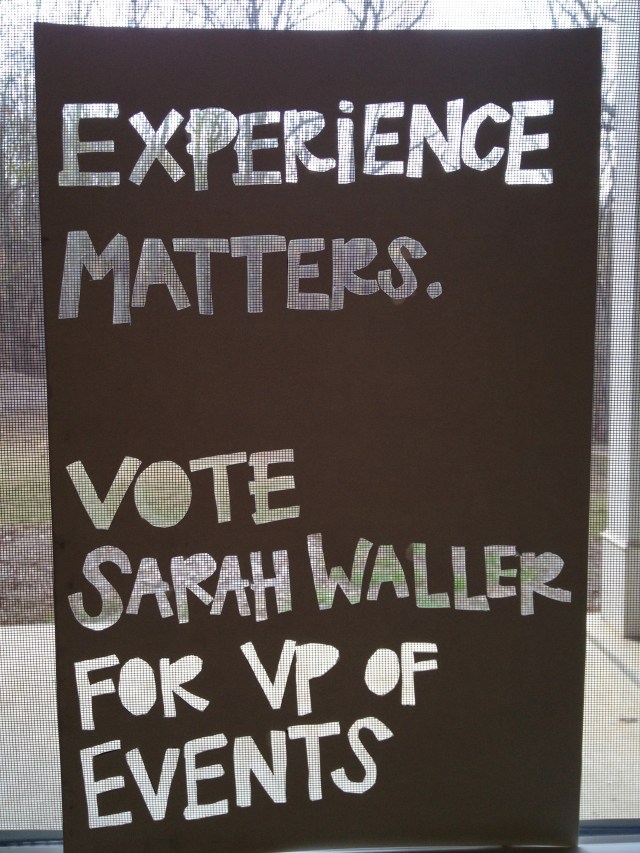 EXPERiENCE
MATTERS.
VOTE
SARAH WALLER
FOR VP OF
EVENTS